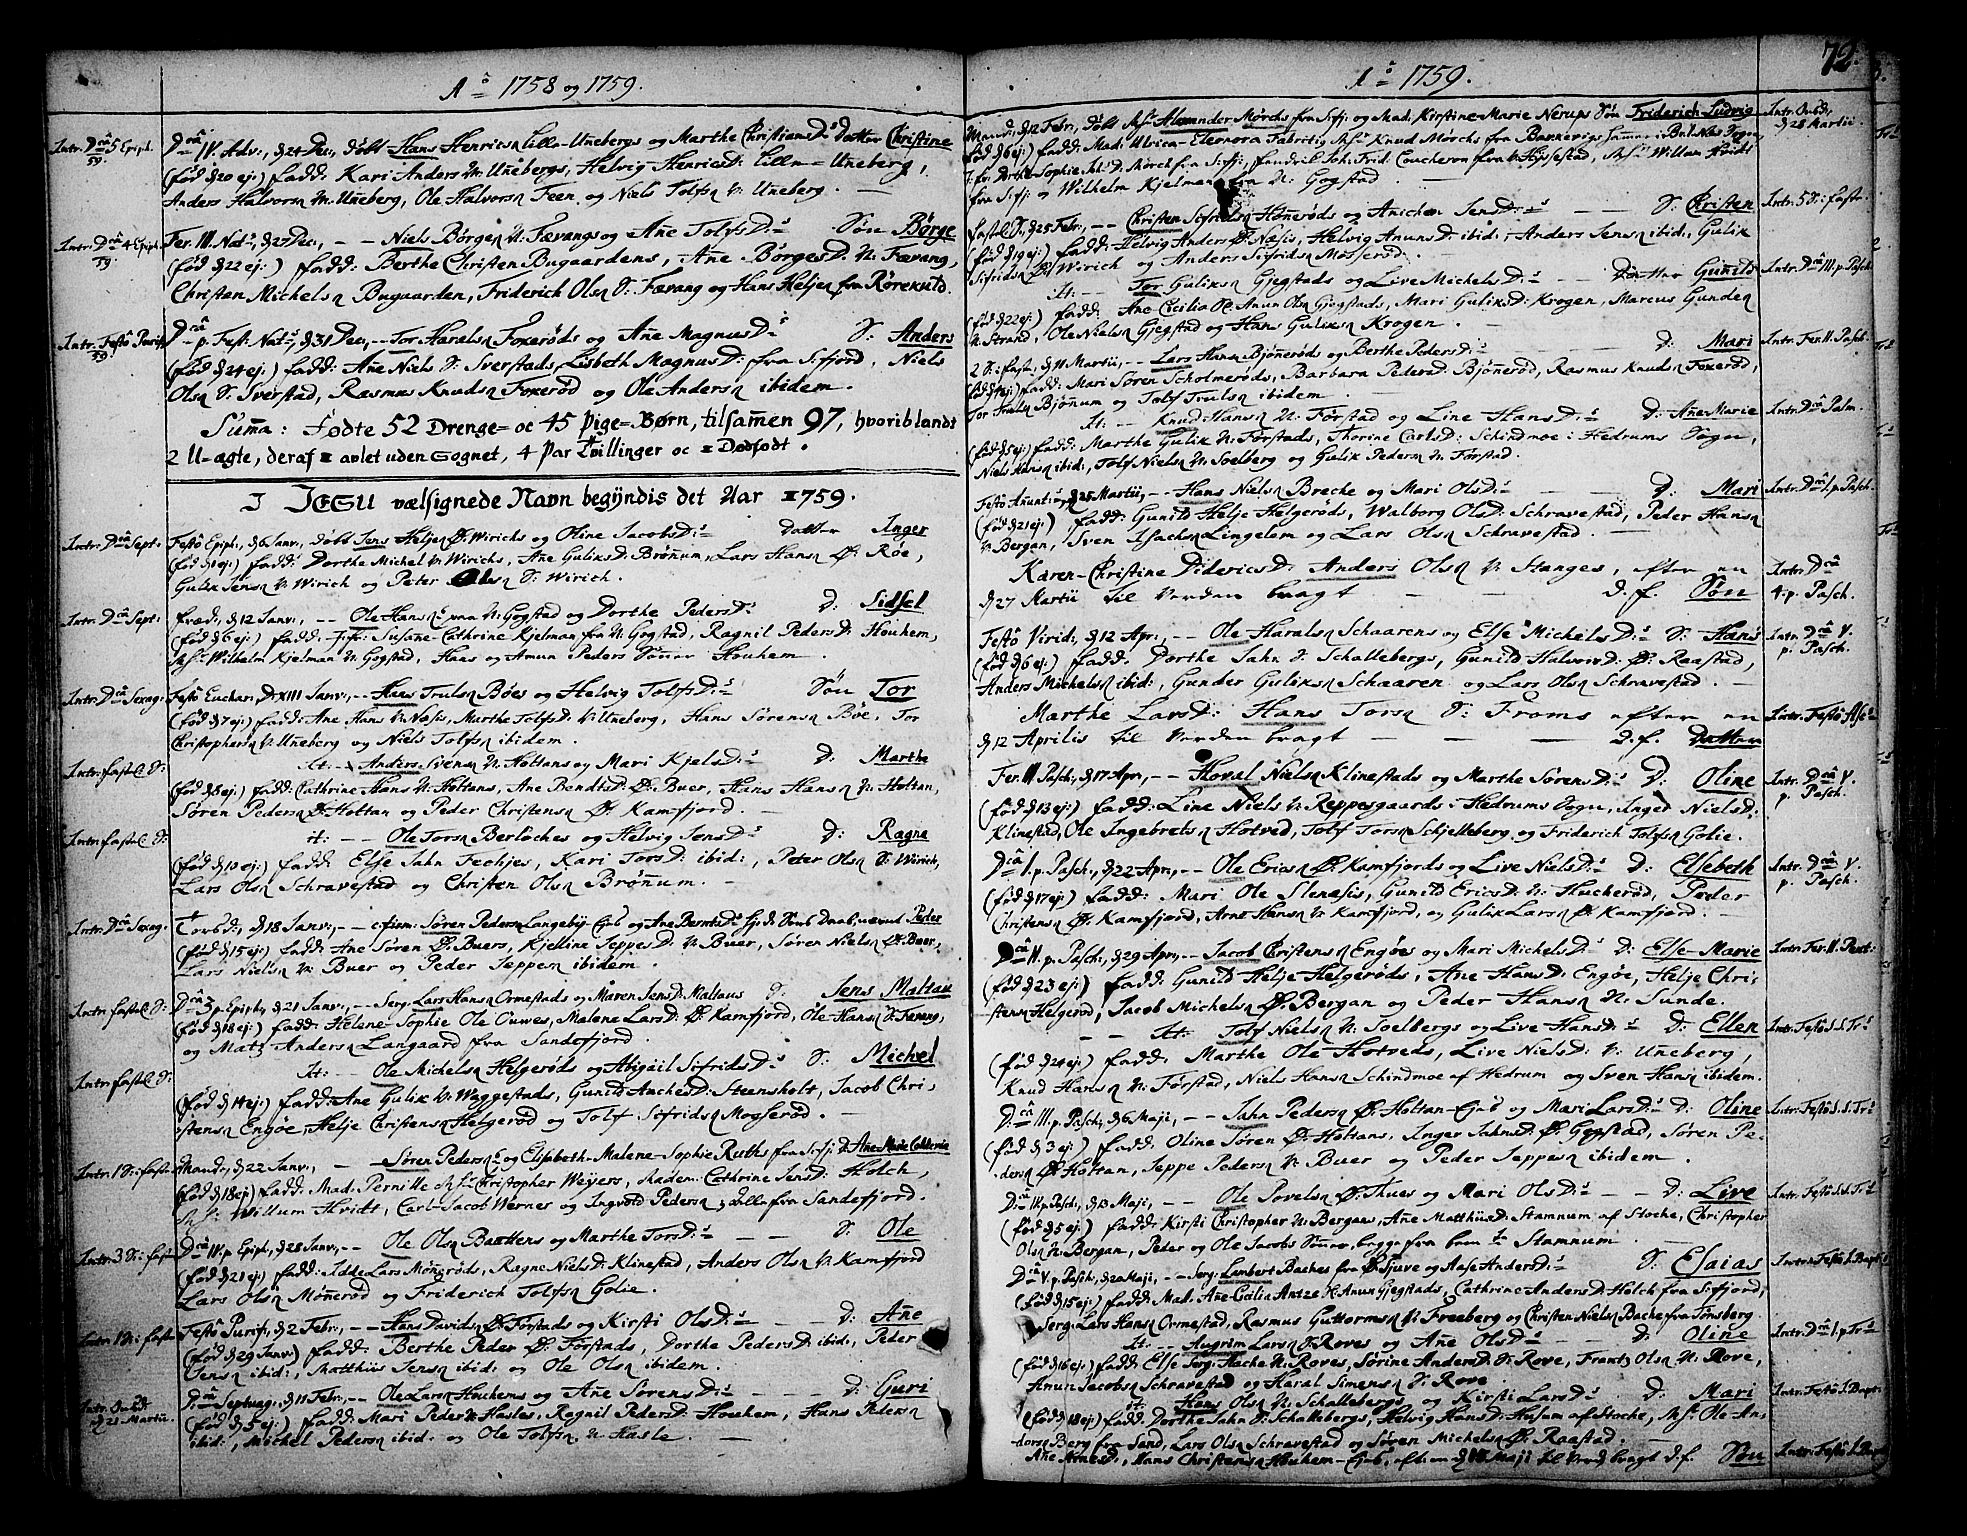 Aº 1758 og 1759.
Intr. Dca 5 Epiph. 59.
Dca IV. Adv., d 24 Dec., døbt Hans Henrics Lille-Unebergs og Marthe ChristiansD:s Datter Christine
(fød d 20 ej:) fadd: Kari Anders N: Unebergs, Helvig HenricsD: Lille-Uneberg,
Anders Halvors N: Uneberg, Ole Halvorsn Feen og Niels Tolfsn N: Uneberg.
Intr. Dca 4 Epiph. 59.
Fer. III. Nat:, d 27 Dec., -- Niels Børgesn N: Fævangs og Ane TolfsD:s Søn Børge
(fød d 22 ej:) fadd: Berthe Christen Bugaardens, Ane BørgesD: N: Fævang,
Christen Michelsn Bugaarden, Friderich Olsn S: Fævang og Hans Heljesn fra Rørekuld.
Intr. Festo Purif. 59
Dca p. Fest: Nat:, d 31 Dec., -- Tor Haralsn Foxerøds og Ane MagnusD:s S: Anders
(fød d 24 ej:) fadd: Ane Niels S: Sverstads, Lisbeth MagnusD: fra Sifjord, Niels
Olsn S: Sverstad, Rasmus Knudsn Foxerød og Ole Andersn ibidem.
Suma: Fødte 52 Drenge- oc 45 Pige-Børn, tilsamen 97, hvoriblandt
2 U-ægte, deraf 1 avlet uden Sognet, 4 Par Tvillinger oc 1 Dødfødt.
I JESU vælsignede Navn begyndis det Aar 1759.
Intr. Dca Sept:
Festo Epiph:, d 6 Janv., døbt Jens Heljesn Ø: Wirichs og Oline JacobsD:s Datter Inger
(fød d 1 ej:) fadd: Dorthe Michel V: Wirichs, Ane GuliksD: Brønum, Lars Hansn Ø: Røe,
Gulik Jensn V: Wirich og Peter Olsn S: Wirich.
Intr. Dca Sept:
Fred:, d 12 Janv., -- Ole Hans:s paa N: Gogstad og Dorthe PedersD:s D: Sidsel
(fød d 6 ej:) fadd: Jfr: Susane-Cathrine Kjelman fra N: Gogstad, Ragnil PedersD: Houhem,
Mr: Wilhelm Kjelman N: Gogstad, Hans og Amun Peders Sønner Houhem.
Intr. Dca Sexag:
Festo Euchar:, d XIII Janv., -- Hans Trulsn Bøes og Helvig TolfsD:s Søn Tor
(fød d 7 ej:) fadd: Ane Hans V: Næsis, Marthe TolfsD: V: Uneberg, Hans Sørensn Bøe, Tor
Christophersn V: Uneberg og Niels Tolfsn ibidem.
Intr: fastel. S:
It: -- Anders Svensn N: Holtans og Mari KjelsD:s D: Marthe
(fød d 8 ej:) fadd: Cathrine Hans N: Holtans, Ane BendtsD: Ø: Buer, Hans Hansn V: Holtan,
Søren Pedersn Ø: Holtan og Peder Christensn Ø: Kamfjord.
Intr: fastel. S:
It: -- Ole Torsn Berløches og Helvig JensD:s D: Ragne
(fød d 10 ej:) fadd: Else Jahn Fechjes, Kari TorsD: ibid:, Peter Olsn S: Wirich,
Lars Olsn Schravestad og Christen Olsn Brønum.
Intr. Dca Sexag.
Torsd:, d 18 Janv., -- Søren Pedersn Langeby og Ane BerntsD:s Peder
(fød d 15 ej:) fadd: Ane Søren Ø: Buers, Kjelline JeppesD: V: Buer, Søren Nielsn Ø: Buer,
Lars Nielsn V: Buer og Peder Jeppesn ibidem.
Intr: fastel. S:
Dca 3 p. Epiph:, d 21 Janv., -- Serg: Lars Hansn Ormestads og Maren JensD: Maltaus Jens Maltau
(fød d 18 ej:) fadd: Helene-Sophie Ole Ouwes, Malene LarsD: Ø: Kamfjord, Ole Hansn S: Fævang,
og Matz Andersn Langaard fra Sandefjord.
Intr: fastel. S:
It: -- Ole Michelsn Helgerøds og Abigail SifridsD:s S: Michel
(fød d 14 ej:) fadd: Ane Gulik V: Waggestads, Gunild AnchesD: Steensholt, Jacob Chri-
stensn Engøe, Helje Christensn Helgerød og Tolf Sifridsn Mogserød.
Intr: 1 S: i fast.
Mand:, d 22 Janv., -- Søren Peders:s og Elisabeth-Malene-Sophie Ruths fra Sifj: D: Ane-Marie
(fød d 18 ej:) fadd: Mad. Pernille Mr: Christopher Weyers, Madem: Cathrine JensD: Holch,
Mr: Willum Hvidt, Carl-Jacob Wernes og Ingvold Pedersn, alle fra Sandefjord.
Intr. 3 S: i fast.
Dca IV. p Epiph:, d 28 Janv., -- Ole Olsn Bautters og Marthe TorsD:s S: Ole
(fød d 21 ej:) fadd: Idde Lars Mønerøds, Ragne NielsD: Klinestad, Anders Olsn V: Kamfjord
Lars Olsn Mønerød og Friderich Tolfsn Golie.
Intr. 1 S: i fast.
Festo Purif:, d 2 Febr., -- Hans Davidsn Ø: Førstads og Kirsti OlsD:s D: Ane
(fød d 29 Janv:) fadd: Berthe Peder Ø: Førstads, Dorthe PedersD: ibid:, Peder
Jensn ibid:, Matthiis Jensn ibid: og Ole Olsn ibidem.
Intr. Onsd. d 21 Martii.
Dca Septuag:, d 11 Febr., -- Ole Larsn Houhems og Ane SørensD:s D: Guri
(fød d 5 ej:) fadd: Mari Peder N: Hasles, Ragnil PedersD: Houhem, Hans Pedersn
ibid:, Michel Pedersn ibid: og Ole Tolfsn N: Hasle.
72.
Aº 1759.
Intr. Onsd, d 28 Martii.
Mand:, d 12 Febr., døbt Mr: Alexander Mørchs fra Sifj: og Mad. Kirstine-Marie Nerups Søn Friderich Ludvig
(fød d 6 ej:) fadd: Mad: Ulrica-Eleonora Fabritij Mr: Knud Mørchs fra
Jfr: Dorthe-Sophie D: Mørch fra Sifj:, Joh: Frid: Coucheron fra V: Hyssestad, Mr: Willum Hvidt
fra Sifj: og Wilhelm Kjelman fra N: Gogstad
Intr. 5 S: i fastr.
fastel. S:, d 25 Febr., -- Christen Sifridsn Hønerøds og Anichen JensD:s S: Christen
(fød d 19 ej:) fadd: Helvig Anders Ø: Næsis, Helvig AmunsD: ibid:, Anders Jensn ibid:, Gulik
Sifridsn Wirich og Anders Sifridsn Møsserød.
Intr. Dca III. p. Pasch.
It: -- Tor Guliksn Gjegstads og Live MichelsD:s Datter Gunild
(fød d 22 ej:) fadd: Ane-Cecilia Ole Amun Olsn Gjogstads, Mari GuliksD: Krogen, Marcus Gundersn
N: Strand, Ole Nielsn Gjegstad og Hans Guliksn Krogen.
Intr. Fer. II. Pasch:
2 S: i fast., d 11 Martii, -- Lars Hansn Bjønerøds og Berthe PedersD:s D: Mari
(fød d 4 ej:) fadd: Mari Søren Scholmerøds, Barbara PedersD Bjønerød, Rasmus Knudsn Foxerød,
Tor Trulsn Bjønum og Tolf Trulsn ibidem.
Intr. Dca Palm.
It: -- Knud Hansn N: Førstad og Line HansD:s D: Ane-Marie
(fød d 5 ej:) fadd: Marthe Gulik N: Førstads, Thorine CarlsD: Schindmoe i Hedrums Sogn,
Niels Hansn ibid:, Tolf Nielsn N: Soelberg og Gulik Pedersn N: Førstad.
Intr. Dca I. p. Pasch.
Festo Anunt:, d 25 Martii, -- Hans Nielsn Breche og Mari OlsD:s D: Mari
(fød d 21 ej:) fadd: Gunild Helje Helgerøds, Walborg OlsD: Schravestad, Peder Hansn
V: Bergan, Sven Isachsn Lingelem og Lars Olsn Schravestad.
Intr. Dca 4. p. Pasch.
Karen-Christine DidericsD: Anders Olsn V: Hanges, efter en
d 27 Martii til Verden bragt d.f. Søn
Intr. Dca V. p. Pasch.
Festo Virid:, d 12 Apr., -- Ole Haralsn Schaarens og Else MichelsD:s S: Hans
(fød d 6 ej:) fadd: Dorthe Jahn S: Schallebergs, Gunild HalvorsD: Ø: Raastad,
Anders Michelsn ibid:, Gunder Guliksn Schaaren og Lars Olsn Schravestad.
Intr. Festo Asc:s
Marthe LarsD: Hans Torsn S: Froms efter en
d 12 Aprilis til Verden bragt D.f. Datter
Intr. Dca V. p. Pasch.
Fer. III Pasch., d 17 Apr., -- Hoval Nielsn Klinestads og Marthe SørensD:s D: Oline
(fød d 13 ej:) fadd: Line Niels N: Reppesgaards i Hedrums Sogn, Inger NielsD:
Klinestad, Ole Ingebretsn Hotved, Tolf Torsn Schjelleberg og Friderich Tolfsn Golie.
Intr. Dca V. p. Pasch.
Dca I. p. Pasch., d 22 Apr., -- Ole Ericsn Ø: Kamfjords og Live NielsD:s D: Elsebeth
(fød d 17 ej:) fadd: Mari Ole Slenæsis, Gunild EricsD: N: Hucherød, Peder
Christensn Ø: Kamfjord, Arne Hansn V: Kamfjord, og Gulik Larsn Ø: Kamfjord.
Intr. Fer. II. Pent:
Dca II. p. Pasch., d 29 Apr., -- Jacob Christensn Engøes og Mari MichelsD:s D: Else-Marie
(fød d 23 ej:) fadd: Gunild Helje Helgerøds, Ane HansD: Engøe, Helje Chri-
stensn Helgerød, Jacob Michelsn Ø: Bergan og Peder Hansn N: Sunde.
Intr. Festo S. S. Tr:s
It: Tolf Nielsn N: Soelbergs og Live HansD:s D: Ellen
(fød d 24 ej:) fadd: Marthe Ole Hotveds, Live NielsD: V: Uneberg,
Knud Hansn N: Førstad, Niels Hansn Schindmoe af Hedrum og Sven Hansn ibidem.
Intr. Festo S. S. Tr:s
Dca III. p. Pasch., d 6 Maji, -- Jahn Pedersn Ø: Holtan og Mari LarsD:s D: Oline
(fød d 3 ej:) fadd: Oline Søren Ø: Holtans, Inger JahnsD: Ø: Gogstad, Søren Pe-
dersn Ø: Holtan, Jeppe Pedersn V: Buer og Peder Jeppesn ibidem.
Intr. Festo S. S. Tr:s
Dca IV. p. Pasch., d 13 Maji, -- Ole Povelsn Ø: Thues og Mari OlsD:s D: Live
(fød d 5 ej:) fadd: Kirsti Christopher N: Bergans, Ane MatthiisD: Stamnum af Stoche, Christopher
Olsn N: Bergan, Peder og Ole Jacobs Sønner, begge fra bem:te Stamnum.
Intr. Festo J. Bapt:
Dca V. p. Pasch., d 20 Maji, -- Serg: Lambert Baches fra Ø: Sjuve og Aase AndersD:s S: Esaias
(fød d 15 ej:) fadd: Mad. Ane-Cecilia Antze H. Amun Gjegstads, Cathrine AndersD: Holch fra Sifjord,
Serg: Lars Hansn Ormestad, Rasmus Guttormsn V: Freeberg og Christen Nielsn Bache fra Tønsberg
Intr. Dca I. p. Tr:s
It: -- Augrim Larsn S: Roves og Ane OlsD:s D: Oline
(fød d 16 ej:) fadd: Else Serg: Hache N: Roves, Sørine AndersD: S: Rove, Frantz Olsn N: Rove,
Amun Jacobsn Schravestad og Haral Simensn S: Rove.
Intr. Festo J. Bapt:
It: Hans Olsn N: Schallebergs og Kirsti LarsD:s D: Mari
(fød d 18 ej:) fadd: Dorthe Jahn S: Schallebergs, Helvig HansD: Husum af Stoche, Mr: Ole An-
dersn Berg fra Sand, Lars Olsn Schravestad og Søren Michelsn Ø: Raastad.
Intr. Festo J. Bapt:
Ane ArnesD:, Hans Christensn Houhem, efter en d Maji til Verd. bragt d.f. Søn